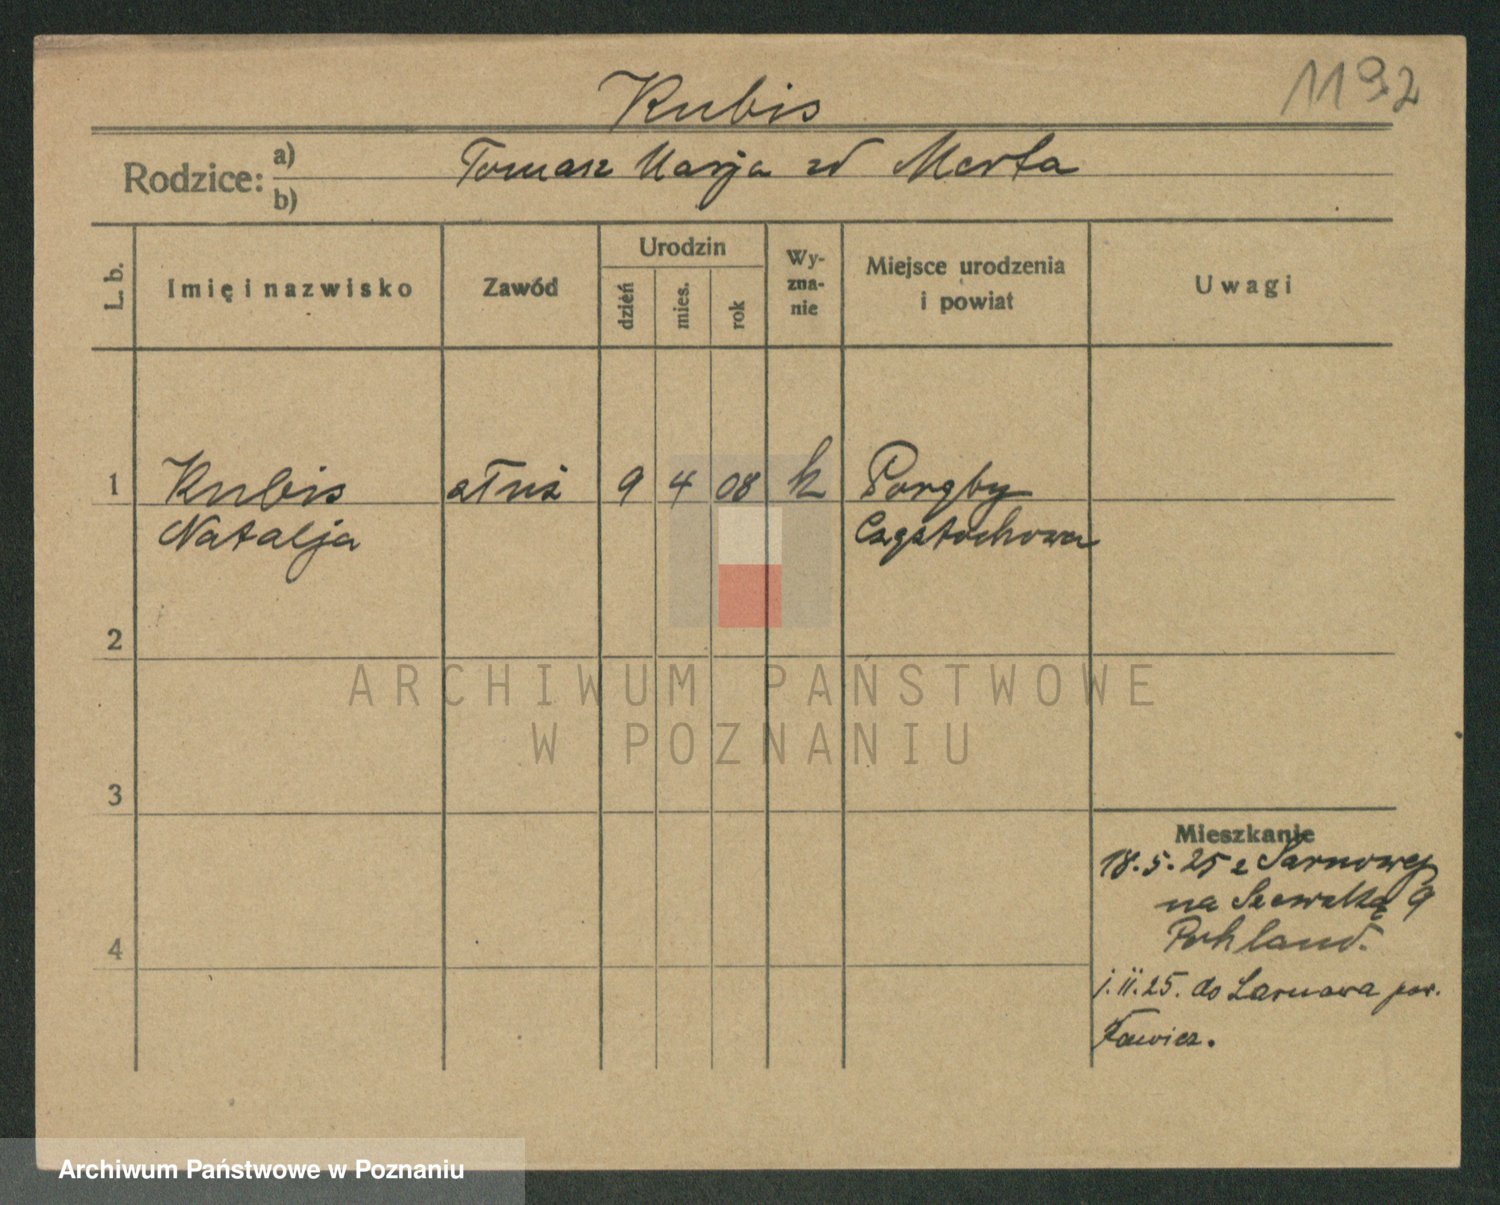 1192
Kubis
Rodzice: a) Tomasz Marja zd Merta
b)
L. b.
Imię i nazwisko
Zawód
Urodzin
dzień
mies.
rok
Wy-
zna-
nie
Miejsce urodzenia
i powiat
Uwagi
1 Kubis 9 4 08 k Poręby
Natalja Częstochowa
2
ARCHIWUM PAŃSTWOWE
W POZNANIU
3
Mieszkanie
18.5.25 z Sarnowej
na 9
4
1.11.25. do Sarnowa pow.
Rawicz.
Archiwum Państwowe w Poznaniu